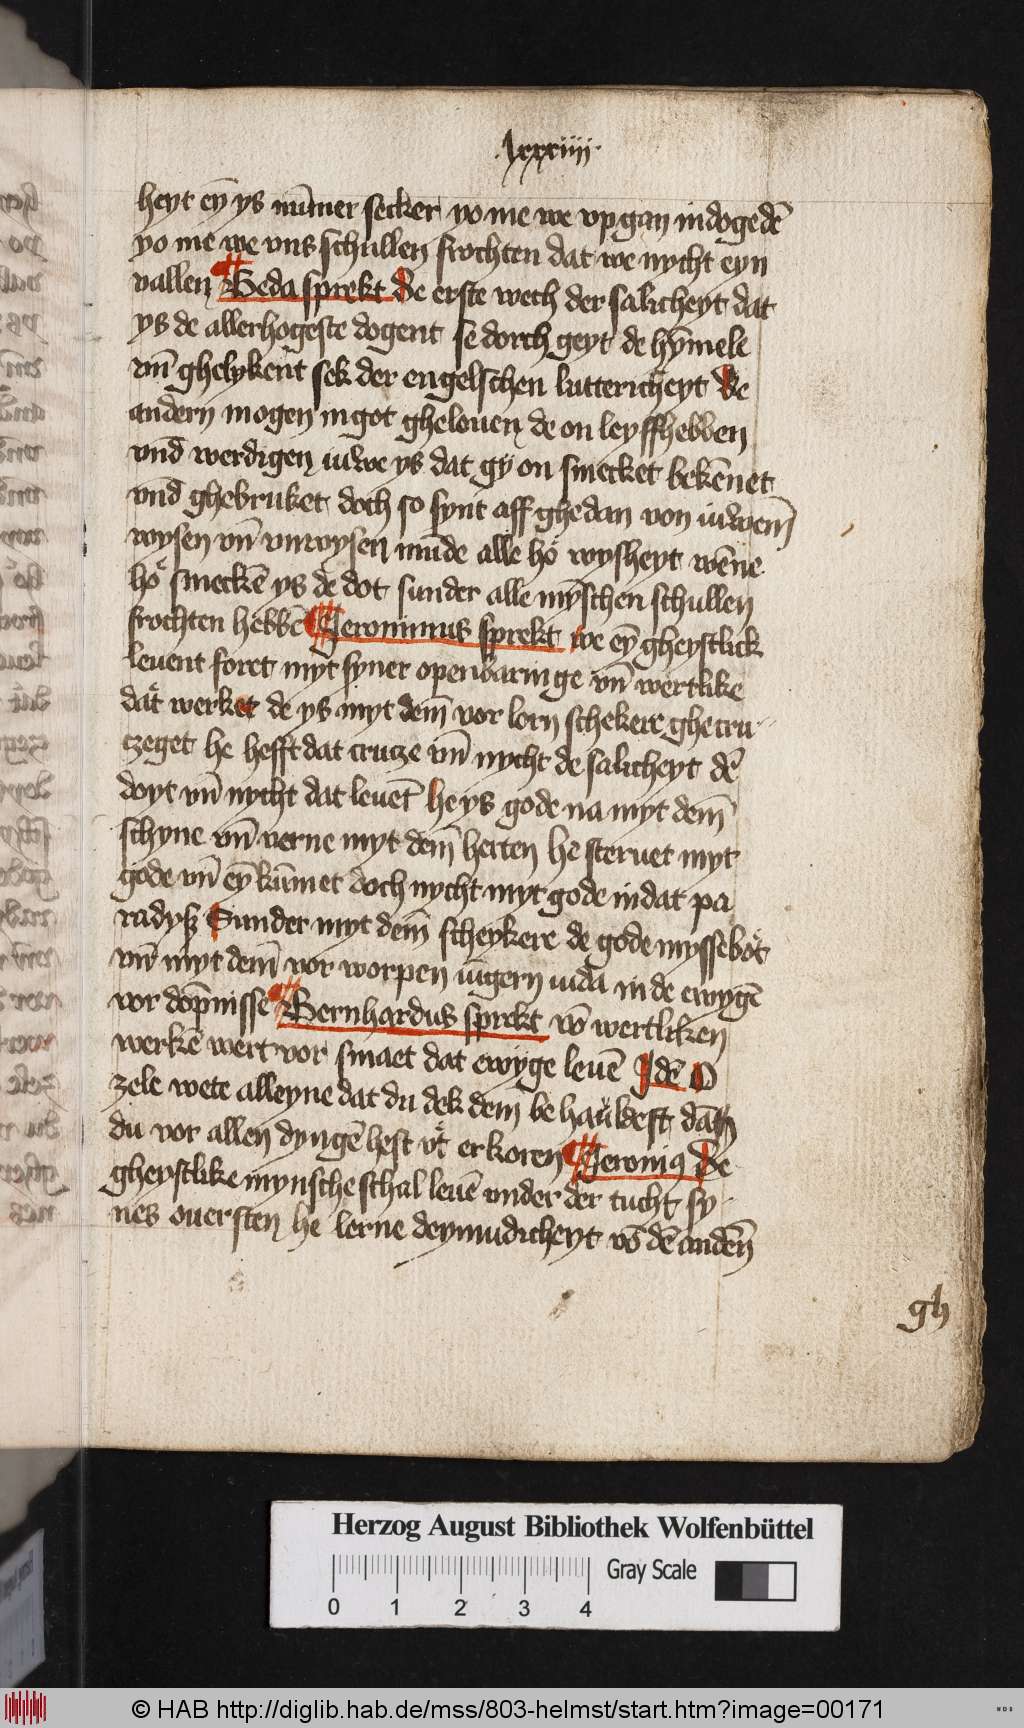 lxxxiiii
heyt eȳ ys nūmer secker yo me we vp gan in dogedē
yo me we vns schullen frochten dat we nycht eyn
vallen Beda sprekt De erste wech der salicheyt dat
ys de allerhogeste dogent se dorch geyt de hȳmele
vn̄ ghelykent sek der engelschen luttericheyt De
andern mogen in got ghelouen de on leyff hebben
vnd̄ werdigen iuwe ys dat gy on smecket bekēnet
vnd̄ ghebruket doch so synt aff ghedan von iuwem̄
wysen vn̄ vnwysen mūde alle hoͤ wysheyt wēne
hoͤ smeckē ys de dot sunder alle mȳschen schullen
frochten hebbē Jeronimus sprekt we eȳ gheystlick
leuent foret myt syner openbaringe vn̄ wertlike
dāt werket de ys myt dem̄ vor lorn schekere ghecru
czeget he hefft dat crucze vn̄ nycht de salicheyt dē
doyt vn̄ nycht dat leuet he ys gode na myt dem̄
schyne vn̄ verne myt dem̄ herten he steruet myt
gode vn̄ eȳ kūmet doch nycht myt gode in dat pa
radysz Sunder myt dem̄ scheykere de gode myssebōt
vn̄ myt dem̄ vor worpen iūgern iuda in de ewygē
vor dōpnisse Bernhardus sprekt vō wertliken
werkē wert vor smaet dat ewyge leuē Idē O
zele wete alleyne dat du dek dem be
du vor allen dyngē hest vt erkoren Jeronimꝰ De
gheystlike mynsche schal leuē vnder der tucht sy
nes ouersten he lerne deymudicheyt vō dē andēn
gh
Herzog August Bibliothek Wolfenbüttel
Gray Scale
0 1 2 3 4
© HAB http://diglib.hab.de/mss/803-helmst/start.htm?image=00171